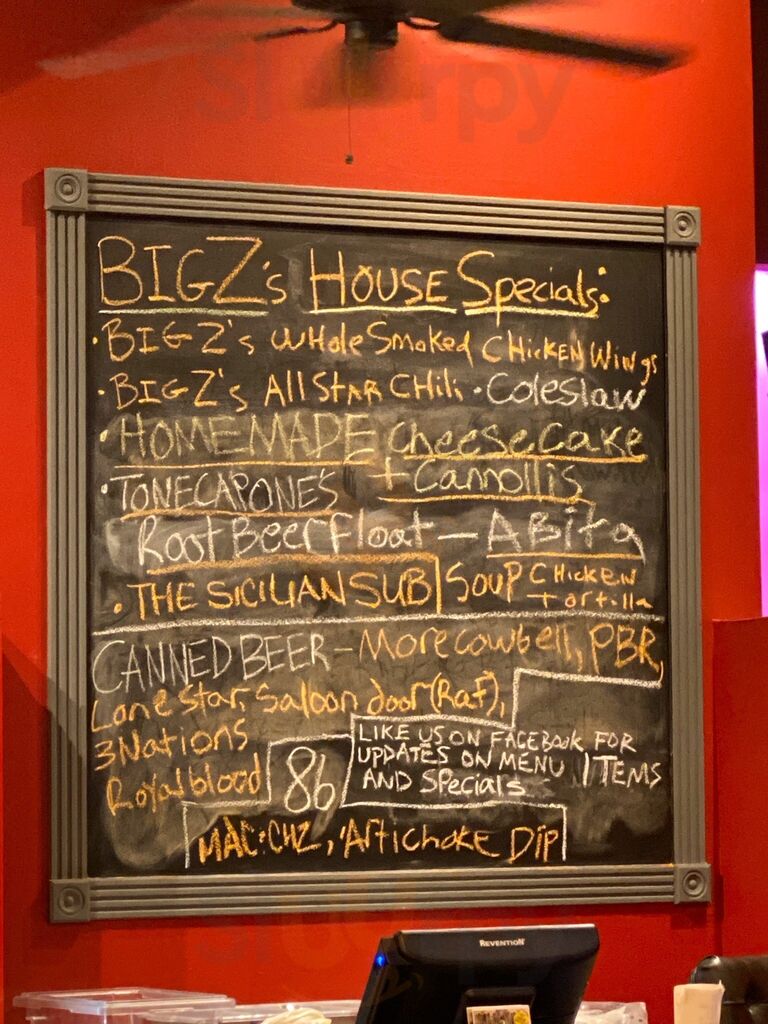 Sluurpy
BIGZ's HOUSE Specials:
• BIGZ's WHole Smoked CHicKEN Wings
• BIGZ's AllStAR CHili • Coleslaw
• HOMEMADE CheeseCake
+ Cannollis
• TONECAPONE'S
Root Beer Float - ABita
• THE SICILIAN SUB
SOUP CHicKEN
Tortilla
CANNED BEER - More cowbell, PBR,
Lone Star, Saloon door (Raf),
3 Nations
Royal blood
LIKE US ON FACEBOOK FOR
UPDATES ON MENU ITEMS
AND Specials
86
MAC:CHZ, Artichoke Dip
REVENTION